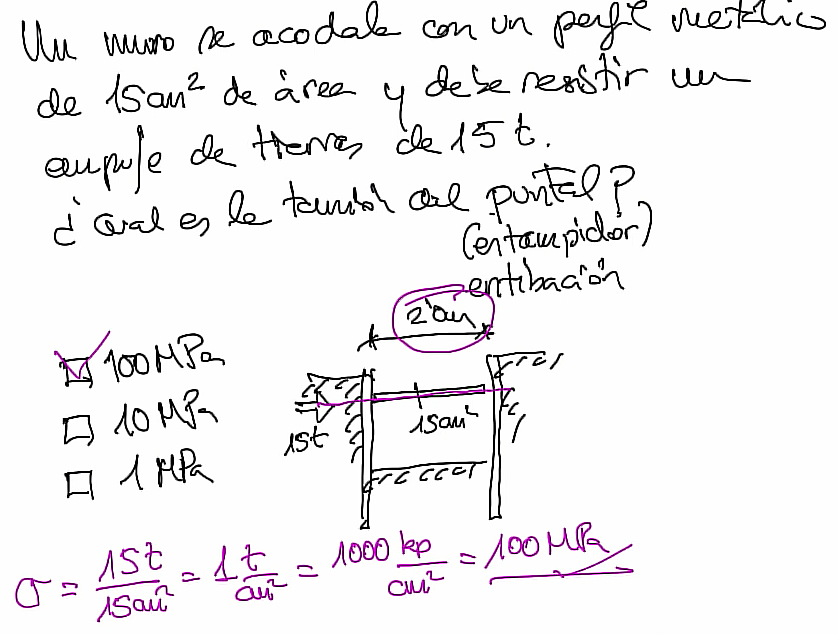 Un muro se acodala con un perfil metálico
de 15cm² de área y debe resistir un
empuje de tierras de 15 t.
¿Cual es la tensión del puntal?
(entampidor)
entibación
2'00m
100 MPa
10 MPa
1 MPa
15t
15cm²
σ = 15t/15cm² = 1 t/cm² = 1000 kp/cm² = 100 MPa